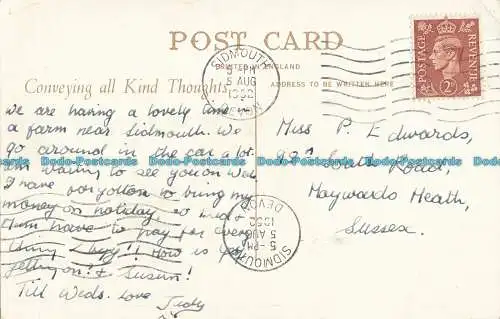 POST CARD
PRINTED IN ENGLAND
Conveying all Kind Thoughts
ADDRESS TO BE WRITTEN HERE
SIDMOUTH
5-PM
5 AUG
1952
DEVON
POSTAGE
REVENUE
2D
We are having a lovely time
a farm near Sidmouth. We
go around in the car a lot.
Am waiting to see you on Wed.
I have forgotten to bring my
money on holiday, so
Mum have to pay for every
thing! How is
getting on? & Susan!
Till Weds. love
Judy
Miss P Edwards,
Road,
Haywards Heath,
Sussex.
SIDMOUTH
5-PM
5 AUG
1952
DEVON
Dodo-Postcards Dodo-Postcards Dodo-Postcards Dodo-Postcards